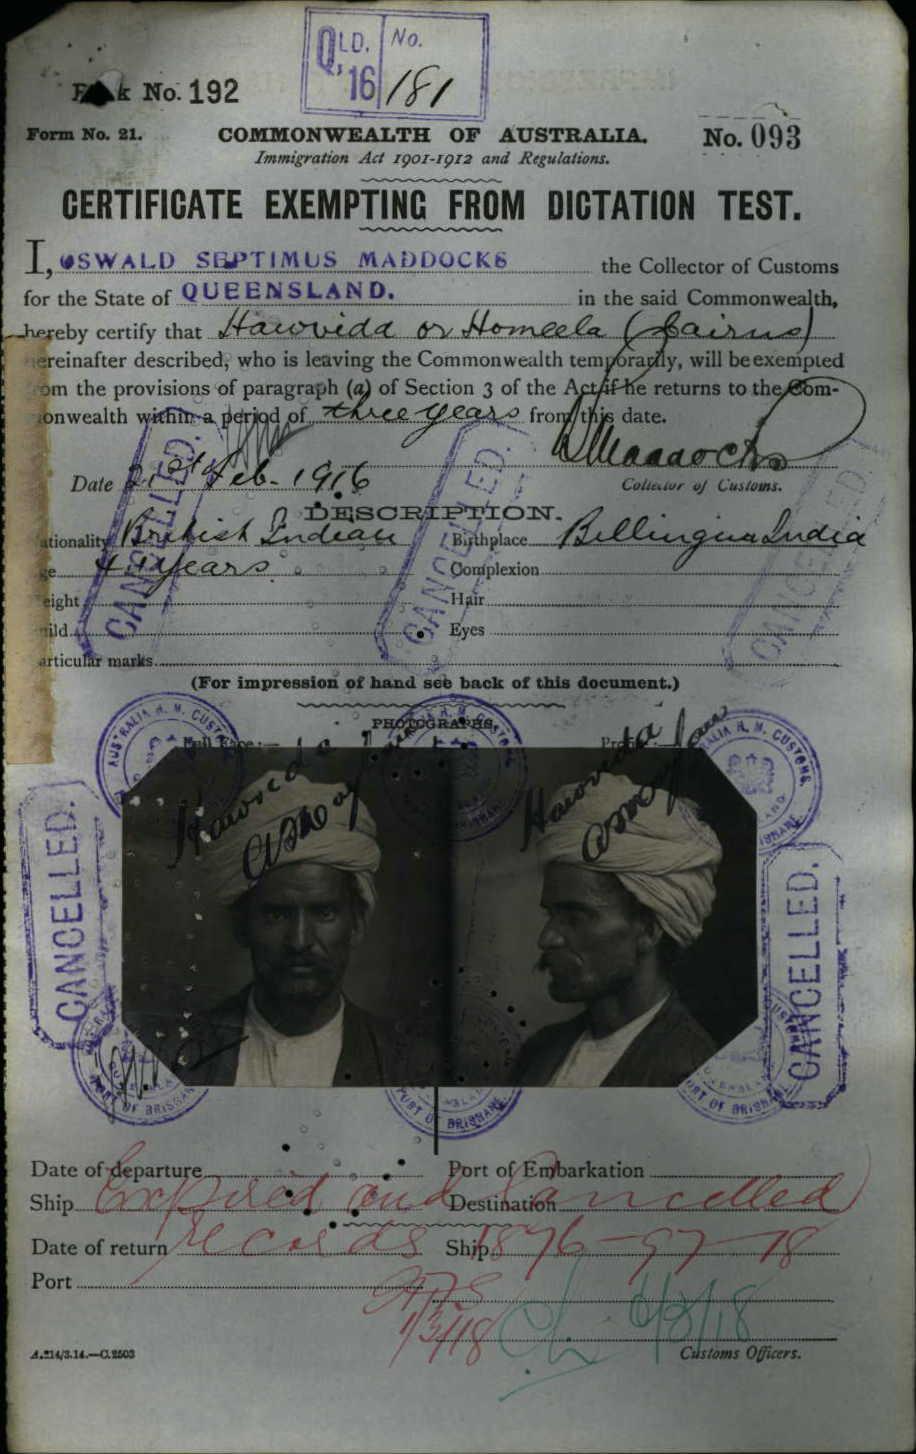 QLD. No.
Q, 16 181
Book No. 192
Form No. 21. COMMONWEALTH OF AUSTRALIA. No. 093
Immigration Act 1901-1912 and Regulations.
CERTIFICATE EXEMPTING FROM DICTATION TEST.
I, OSWALD SEPTIMUS MADDOCKS the Collector of Customs
for the State of QUEENSLAND. in the said Commonwealth,
hereby certify that Hawvida or Homeela (Cairns)
hereinafter described, who is leaving the Commonwealth temporarily, will be exempted
from the provisions of paragraph (a) of Section 3 of the Act if he returns to the Com-
monwealth within a period of three years from this date.
OSMaddocks
Date 21st Feb. 1916 Collector of Customs.
DESCRIPTION.
Nationality British Indian Birthplace Billingua India
Age 44 years Complexion
Height Hair
Build Eyes
Particular marks
(For impression of hand see back of this document.)
PHOTOGRAPHS.
Full Face:— Profile:—
Hawvida Hawvida
AUSTRALIA H. M. CUSTOMS.
PORT OF BRISBANE
CANCELLED.
CANCELLED.
CANCELLED.
CANCELLED.
CANCELLED.
Date of departure Port of Embarkation
Ship Destination
Expired and Cancelled
Date of return Ship
records 1896-97-18
Port
1/3/18 6/3/18
A.214/3.14.—C.2503 Customs Officers.